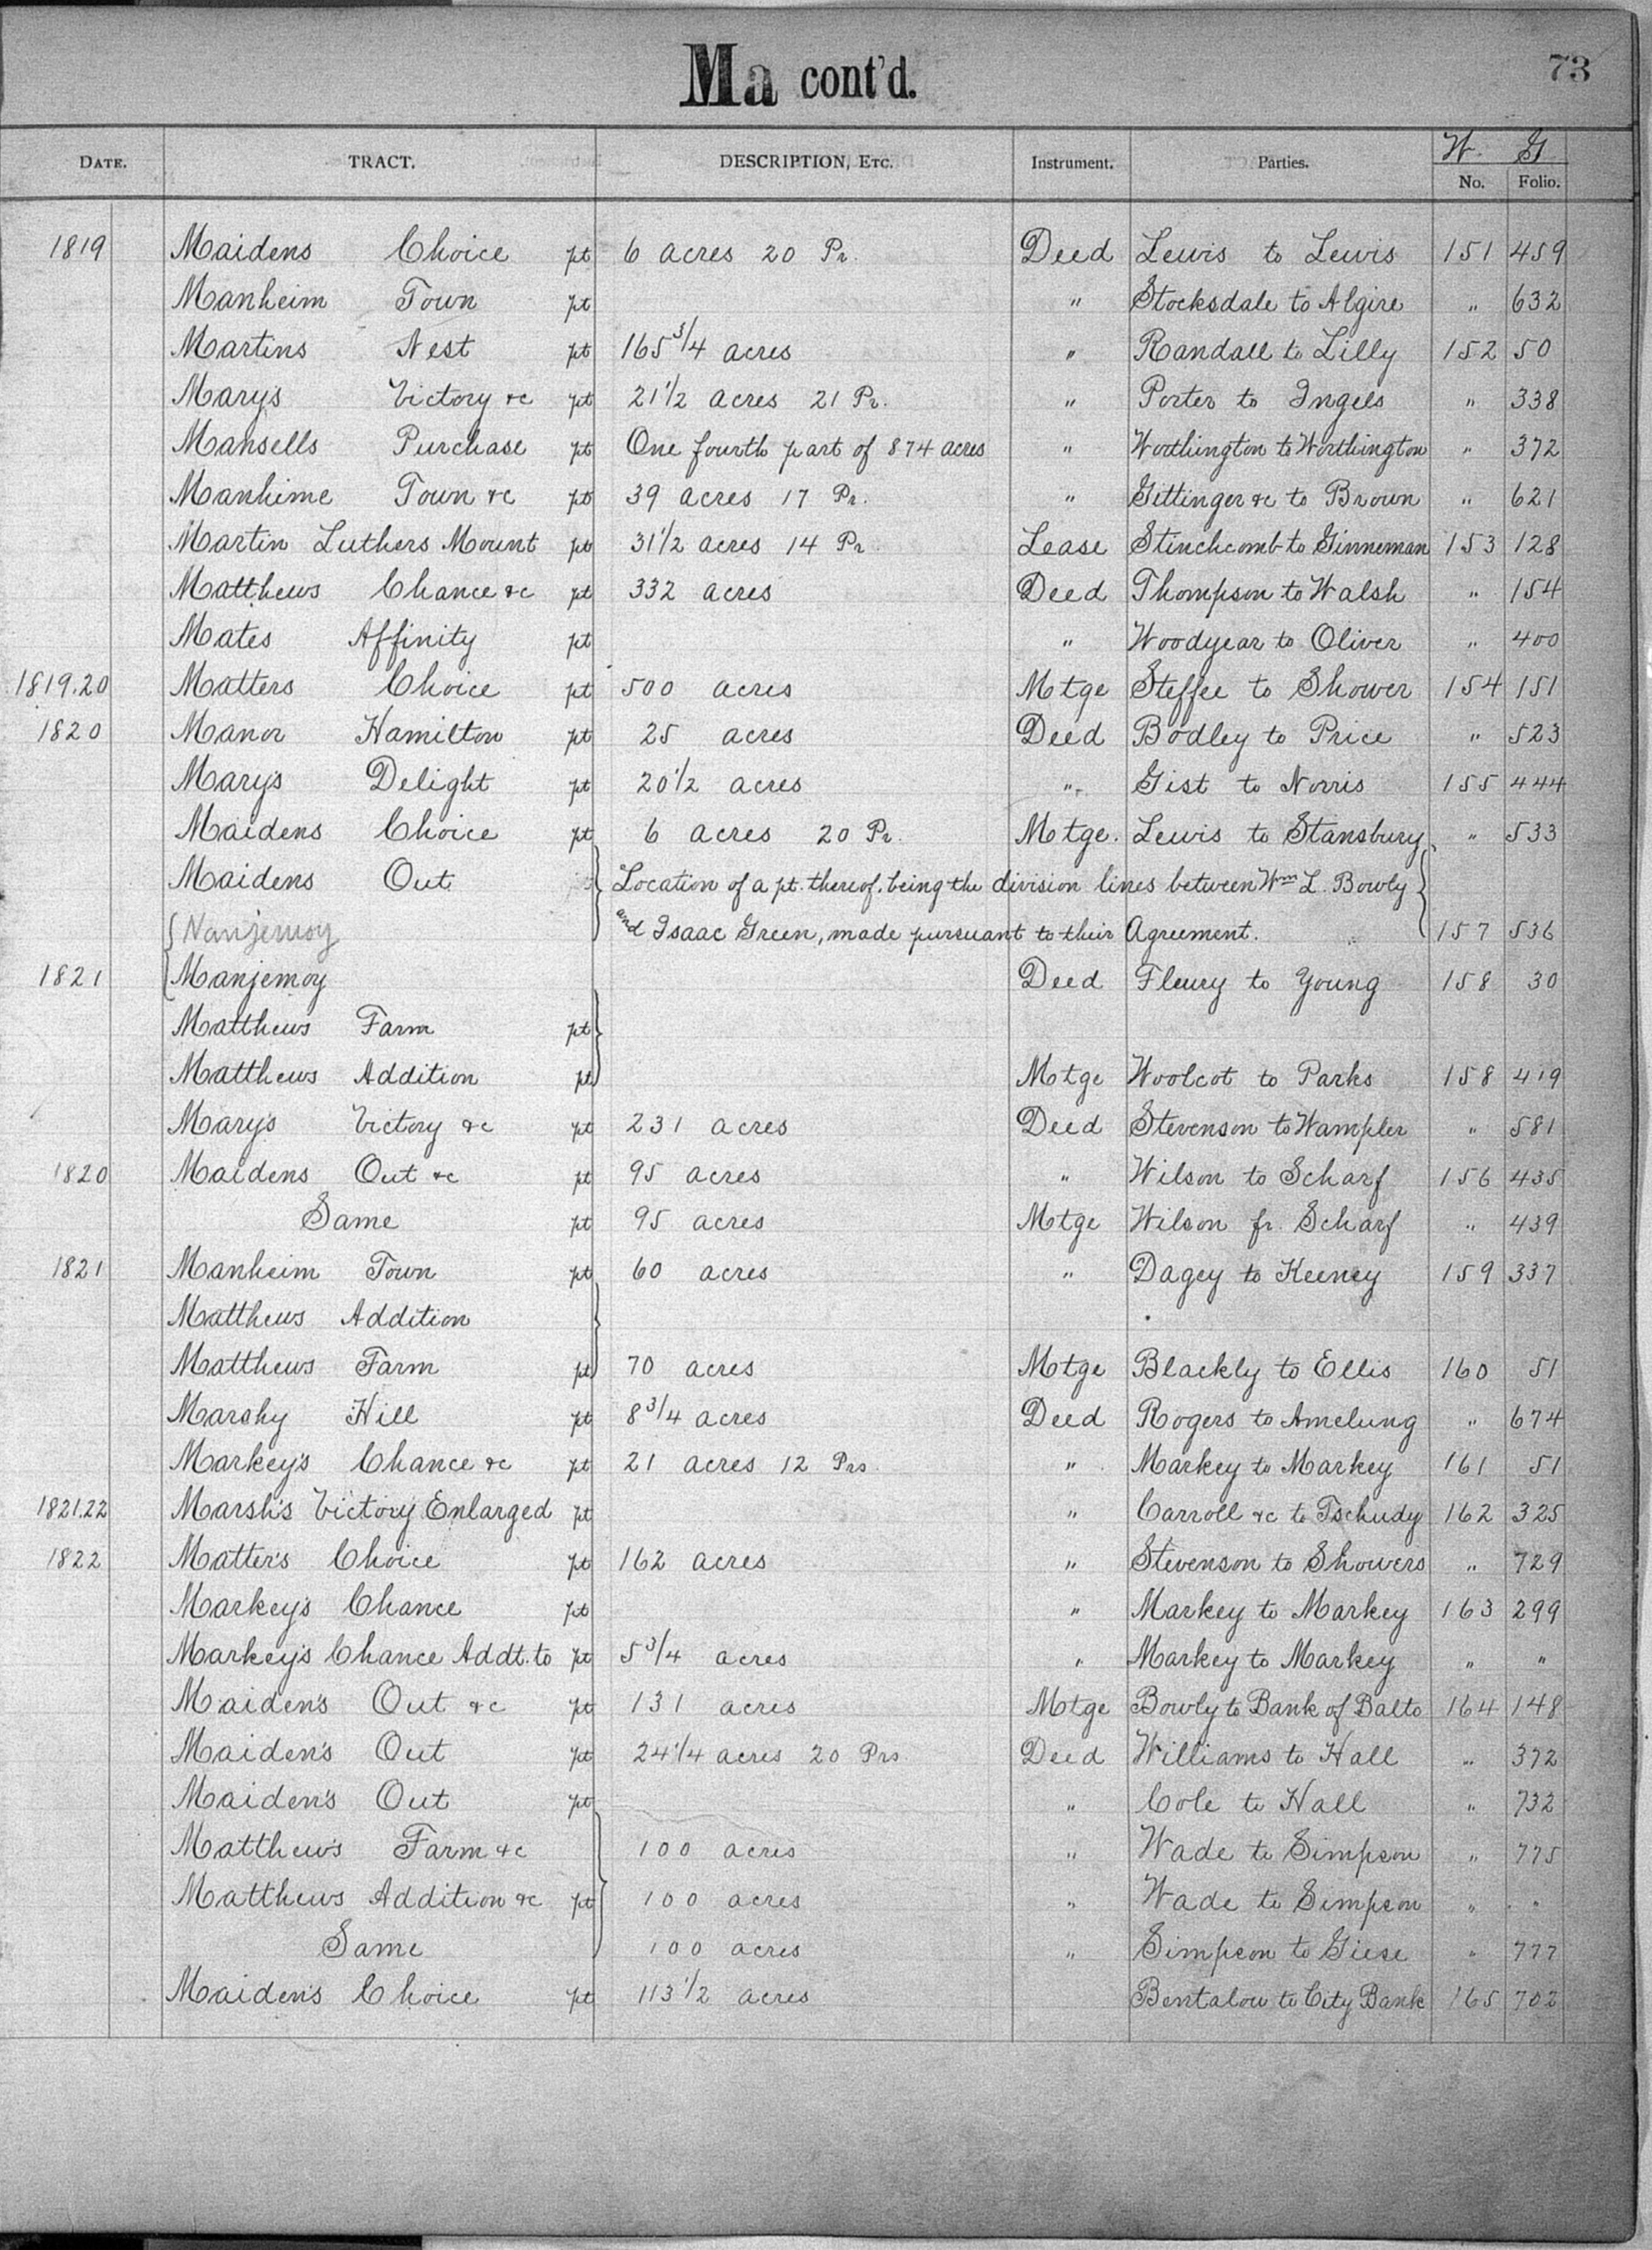 Ma cont'd.
73
DATE. TRACT. DESCRIPTION, ETC. Instrument. Parties. W. G
No. Folio.
1819 Maidens Choice pt 6 acres 20 Pr. Deed Lewis to Lewis 151 459
Manheim Town pt " Stocksdale to Algire " 632
Martins Nest pt 165 3/4 acres " Randall to Lilly 152 50
Mary's Victory &c pt 21 1/2 acres 21 Pr. " Porter to Ingels " 338
Mansells Purchase pt One fourth part of 874 acres " Worthington to Worthington " 372
Manhime Town &c pt 39 acres 17 Pr. " Gittinger &c to Brown " 621
Martin Luthers Mount pt 31 1/2 acres 14 Pr Lease Stinchcomb to Ginneman 153 128
Matthews Chance &c pt 332 acres Deed Thompson to Walsh " 154
Mates Affinity pt " Woodyear to Oliver " 400
1819.20 Matters Choice pt 500 acres Motge Steffee to Shower 154 151
1820 Manor Hamilton pt 25 acres Deed Bodley to Price " 523
Mary's Delight pt 20 1/2 acres " Gist to Norris 155 444
Maidens Choice pt 6 acres 20 Pr. Motge. Lewis to Stansbury " 533
Maidens Out Location of a pt. thereof, being the division lines between Wm L. Bowly
Nanjemoy and Isaac Green, made pursuant to their Agreement. 157 536
1821 Manjemoy Deed Fleury to Young 158 30
Matthews Farm pt
Matthews Addition pt Motge Woolcot to Parks 158 419
Mary's Victory &c pt 231 acres Deed Stevenson to Wampler " 581
1820 Maidens Out &c pt 95 acres " Wilson to Scharf 156 435
Same pt 95 acres Motge Wilson fr. Scharf " 439
1821 Manheim Town pt 60 acres " Dagey to Keeney 159 337
Matthews Addition
Matthews Farm pt 70 acres Motge Blackly to Ellis 160 51
Marshy Hill pt 8 3/4 acres Deed Rogers to Amelung " 674
Markey's Chance &c pt 21 acres 12 Prs " Markey to Markey 161 51
1821.22 Marsh's Victory Enlarged pt " Carroll &c to Tschudy 162 325
1822 Matter's Choice pt 162 acres " Stevenson to Showers " 729
Markey's Chance pt " Markey to Markey 163 299
Markey's Chance Addt. to pt 5 3/4 acres " Markey to Markey " "
Maiden's Out &c pt 131 acres Motge Bowly to Bank of Balto 164 148
Maiden's Out pt 24 1/4 acres 20 Prs Deed Williams to Hall " 372
Maiden's Out pt " Cole to Hall " 732
Matthew's Farm &c 100 acres " Wade to Simpson " 775
Matthews Addition &c pt 100 acres " Wade to Simpson " "
Same 100 acres " Simpson to Giese " 777
Maiden's Choice pt 113 1/2 acres Bentalou to City Bank 165 702